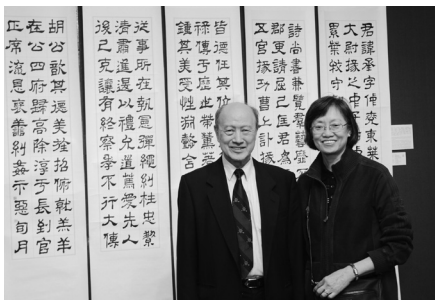 君諱承字仲兗東萊
大尉掾之中子
累葉牧守
詩尚書兼覽群藝靡
郡更請屈己匡君為
五官掾功曹上計掾
皆德任其位
祿傳于歷世策薰
鍾其美受性淵懿含
從事所在執憲彈繩糾枉忠絜
清肅進退以禮允道篤愛先人
後己克讓有終察孝不行大傅
胡公歆其德美旌招俯就羔羊
在公四府歸高除淳于長到官
正席流恩褒善糾姦示惡旬月